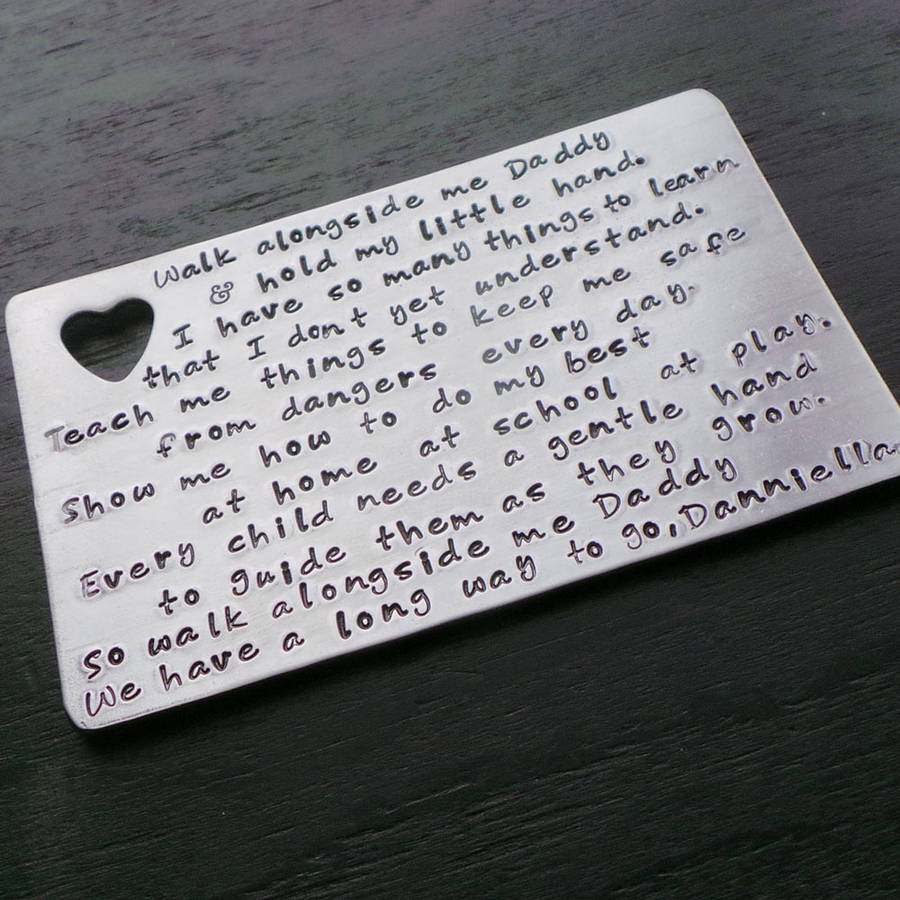 Walk alongside me Daddy
& hold my little hand.
I have so many things to learn
that I don't yet understand.
Teach me things to keep me safe
from dangers every day.
Show me how to do my best
at home at school at play.
Every child needs a gentle hand
to guide them as they grow.
So walk alongside me Daddy
We have a long way to go, Danniella